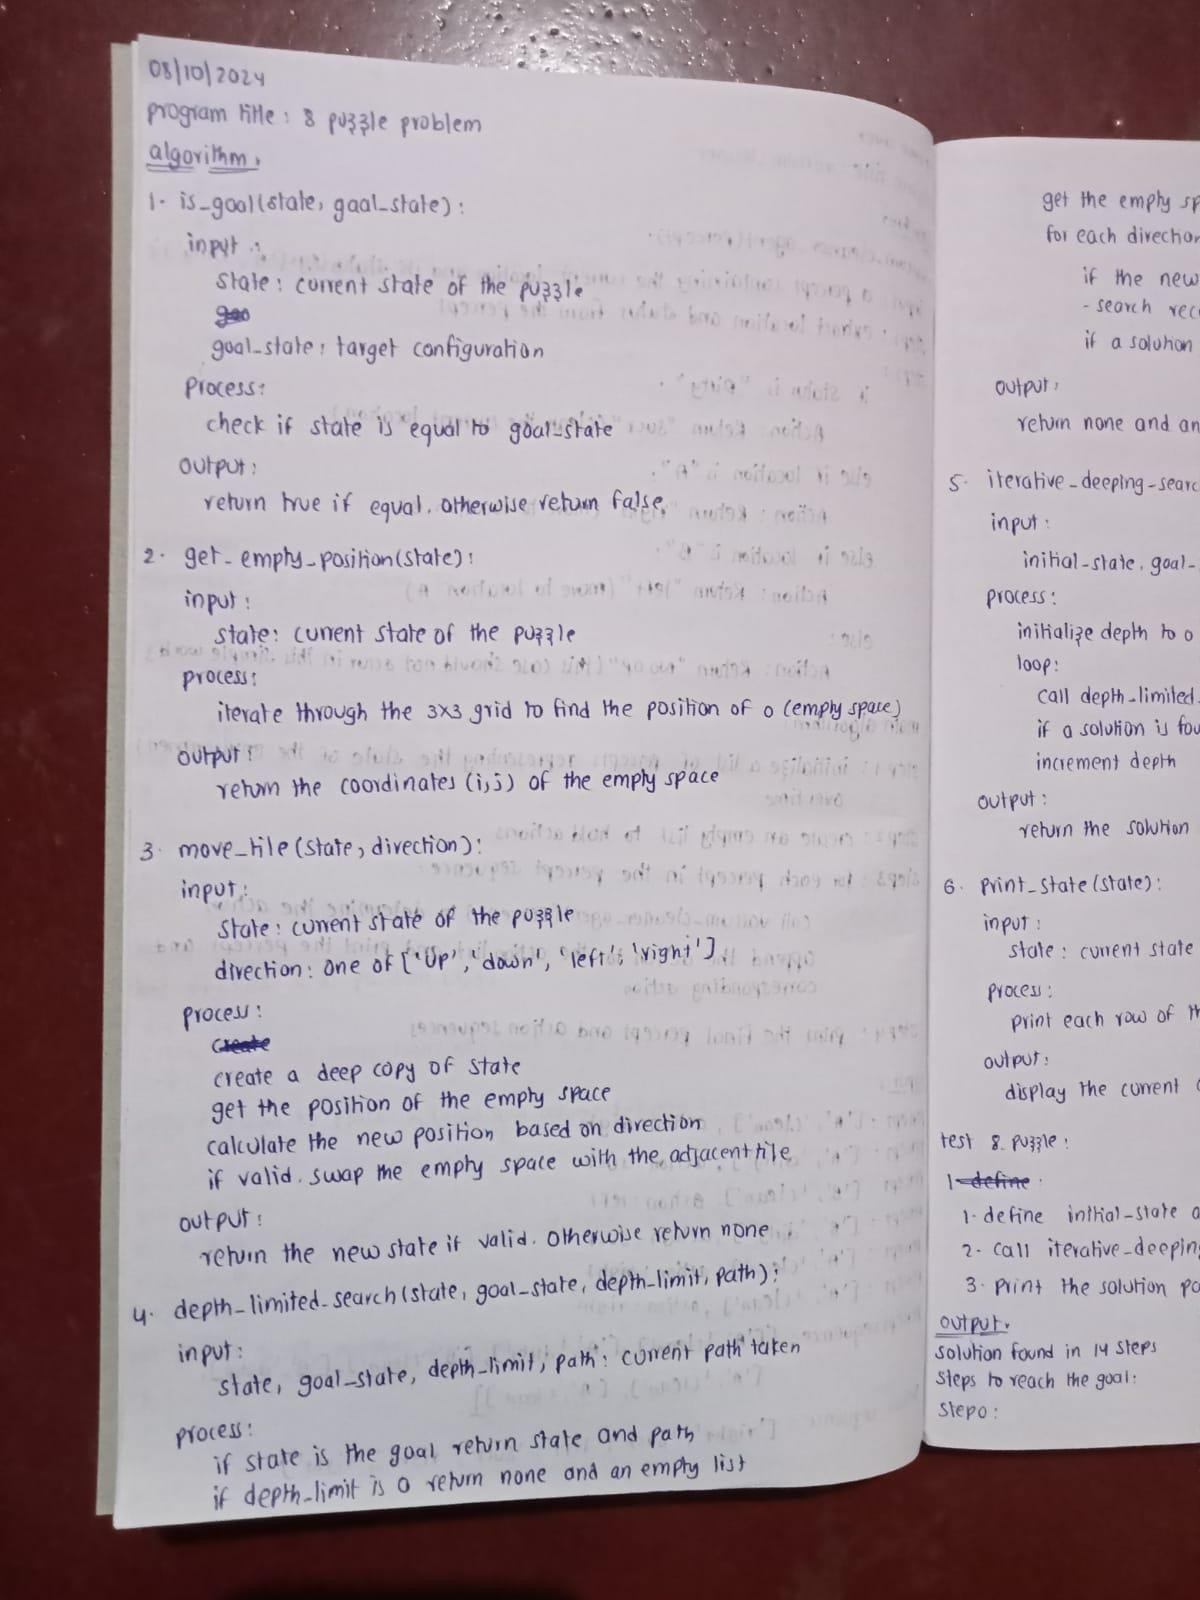 08/10/2024
program title : 8 puzzle problem
algorithm.
1. is_gool(state, gaal_state):
input :
state: current state of the puzzle
goal_state: target configuration
process:
check if state is equal to goal_state
output:
return true if equal. otherwise return false.
2. get_empty_position(state):
input :
state: current state of the puzzle
process:
iterate through the 3x3 grid to find the position of 0 (empty space)
output :
return the coordinates (i,j) of the empty space
3. move_tile (state, direction):
input :
state: current state of the puzzle
direction: one of ['Up', 'down', 'left', 'right']
process:
create
create a deep copy of state
get the position of the empty space
calculate the new position based on direction
if valid. swap the empty space with the adjacent tile
output:
return the new state if valid. otherwise return none
4. depth_limited_search(state, goal_state, depth_limit, path):
input:
state, goal_state, depth_limit, path: current path taken
process:
if state is the goal return state and path
if depth_limit is 0 return none and an empty list
get the empty sp
for each direction
if the new
- search rec
if a solution
output:
return none and an
5. iterative_deeping_searc
input :
initial_state, goal_
process:
initialize depth to 0
loop:
call depth_limited
if a solution is fou
increment depth
output:
return the solution
6. print_state(state):
input :
state : current state
process:
print each row of th
output:
display the current
test 8. puzzle:
1 define
1. define initial_state a
2. call iterative_deeping
3. print the solution pa
output.
solution found in 14 steps
steps to reach the goal:
step 0: